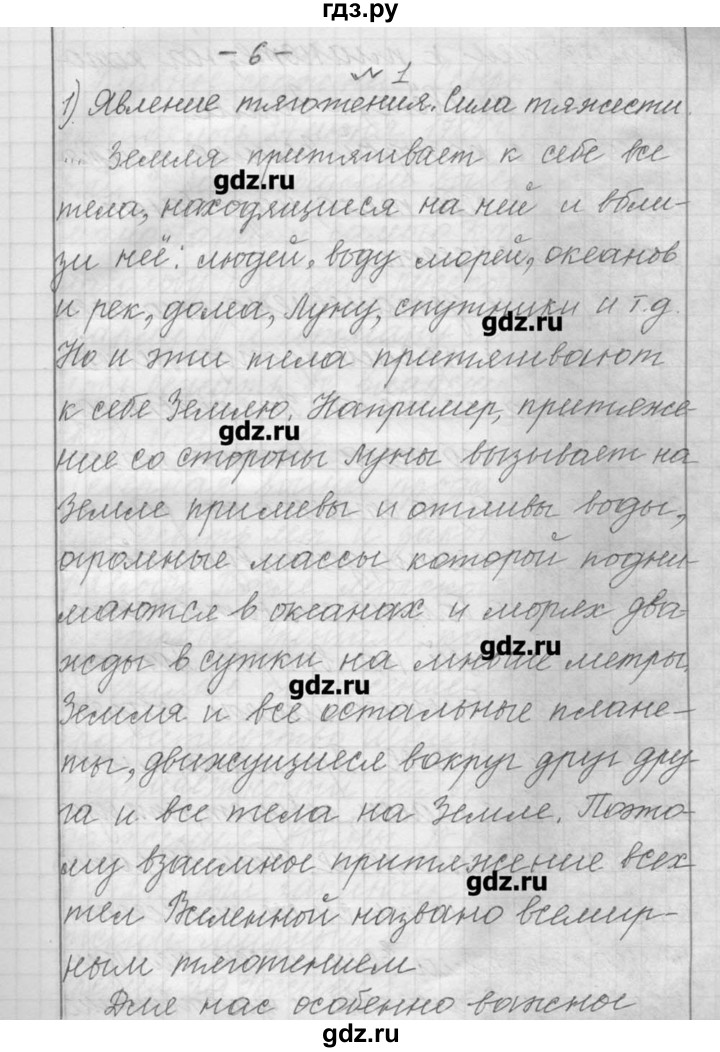 гдз.ру
- 6 -
№ 1
1) Явление тяготения. Сила тяжести.
... Земля притягивает к себе все
gdz.ru
тела, находящиеся на ней и вбли-
зи неё: людей, воду морей, океанов
и рек, дома, Луну, спутники и т.д.
gdz.ru
Но и эти тела притягивают
к себе Землю. Например, притяже-
gdz.ru
ние со стороны Луны вызывает на
Земле приливы и отливы воды,
огромные массы которой подни-
маются в океанах и морях два-
жды в сутки на многие метры.
gdz.ru
gdz.ru
Земля и все остальные плане-
ты, движущиеся вокруг друг дру-
га и все тела на Земле. Поэто-
му взаимное притяжение всех
gdz.ru
тел Вселенной названо всемир-
ным тяготением.
Для нас особенно важное
gdz.ru